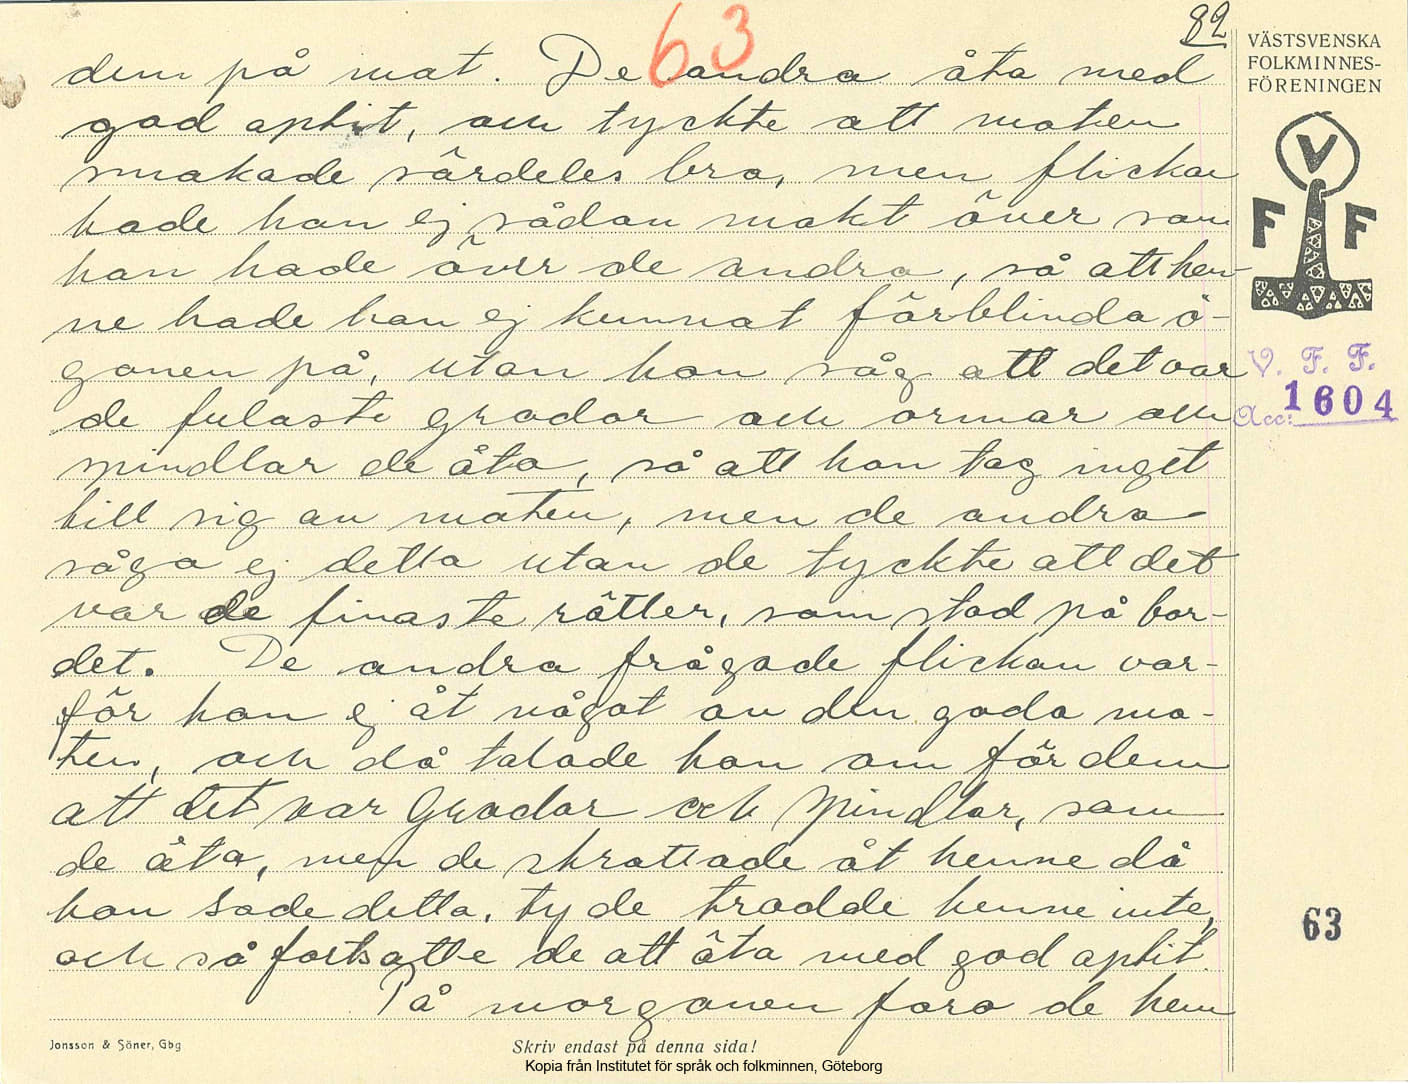 63
82
dem på mat. De andra åta med
god aptit, och tyckte att maten
smakade särdeles bra, men flickan
hade han ej sådan makt över som
han hade över de andra, så att hen-
ne hade han ej kunnat förblinda ö-
gonen på, utan hon såg att det var
de fulaste grodor och ormar och
mindlar de åta, så att hon tog inget
till sig av maten, men de andra
såga ej detta utan de tyckte att det
var de finaste rätter, som stod på bor-
det. De andra frågade flickan var-
för hon ej åt något av den goda ma-
ten, och då talade hon om för dem
att det var Grodor och Mindlar, som
de åta, men de skrattade åt henne då
hon sade detta, ty de trodde henne inte,
och så fortsatte de att äta med god aptit.
På morgonen foro de hem
VÄSTSVENSKA
FOLKMINNES-
FÖRENINGEN
V
F F
V. F. F.
Acc: 1604
63
Jonsson & Söner, Gbg
Skriv endast på denna sida!
Kopia från Institutet för språk och folkminnen, Göteborg